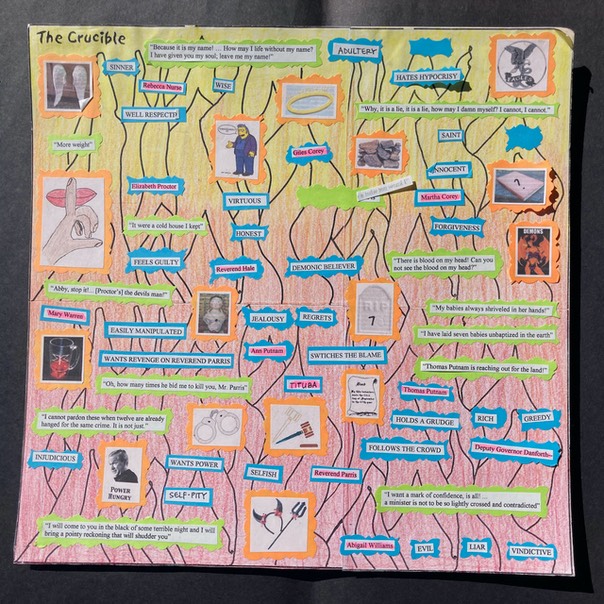 The Crucible
"Because it is my name! ... How may I life without my name?
I have given you my soul; leave me my name!"
ADULTERY
SINNER
HATES HYPOCRISY
Rebecca Nurse
WISE
"Why, it is a lie, it is a lie, how may I damn myself? I cannot, I cannot."
WELL RESPECTED
"More weight"
Giles Corey
SAINT
INNOCENT
Elizabeth Proctor
VIRTUOUS
Martha Corey
?
"It were a cold house I kept"
HONEST
FORGIVENESS
DEMONS
FEELS GUILTY
Reverend Hale
DEMONIC BELIEVER
"There is blood on my head! Can you
not see the blood on my head?"
"Abby, stop it!... [Proctor's] the devils man!"
Mary Warren
JEALOUSY
REGRETS
7
"My babies always shriveled in her hands!"
EASILY MANIPULATED
"I have laid seven babies unbaptized in the earth"
WANTS REVENGE ON REVEREND PARRIS
Ann Putnam
SWTICHES THE BLAME
"Thomas Putnam is reaching out for the land!"
"Oh, how many times he bid me to kill you, Mr. Parris"
TITUBA
Thomas Putnam
"I cannot pardon these when twelve are already
hanged for the same crime. It is not just."
HOLDS A GRUDGE
RICH
GREEDY
INJUDICIOUS
WANTS POWER
FOLLOWS THE CROWD
Deputy Governor Danforth
POWER
HUNGRY
SELFISH
Reverend Parris
SELF-PITY
"I want a mark of confidence, is all! ...
a minister is not to be so lightly crossed and contradicted"
"I will come to you in the black of some terrible night and I will
bring a pointy reckoning that will shudder you"
Abigail Williams
EVIL
LIAR
VINDICTIVE